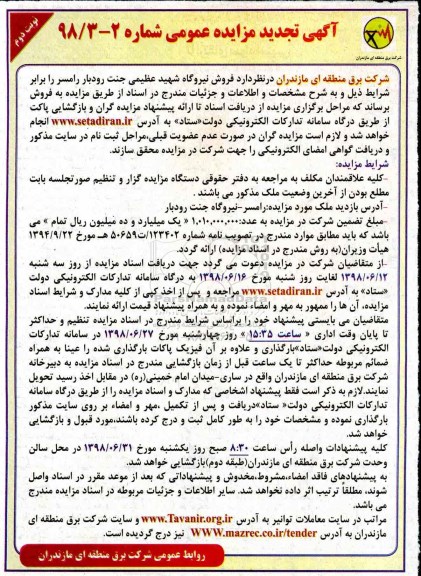 نوبت دوم
آگهی تجدید مزایده عمومی شماره ۲-۹۸/۳
شرکت برق منطقه ای مازندران
شرکت برق منطقه ای مازندران درنظردارد فروش نیروگاه شهید عظیمی جنت رودبار رامسر را برابر
شرایط ذیل و به شرح مشخصات و اطلاعات و جزئیات مندرج در اسناد از طریق مزایده به فروش
برساند که مراحل برگزاری مزایده از دریافت اسناد تا ارائه پیشنهاد مزایده گران و بازگشایی پاکت
از طریق درگاه سامانه تدارکات الکترونیکی دولت«ستاد» به آدرس www.setadiran.ir انجام
خواهد شد و لازم است مزایده گران در صورت عدم عضویت قبلی،مراحل ثبت نام در سایت مذکور
و دریافت گواهی امضای الکترونیکی را جهت شرکت در مزایده محقق سازند.
شرایط مزایده:
-کلیه علاقمندان مکلف به مراجعه به دفتر حقوقی دستگاه مزایده گزار و تنظیم صورتجلسه بابت
مطلع بودن از آخرین وضعیت ملک مذکور می باشند .
-آدرس بازدید ملک مورد مزایده:رامسر-نیروگاه جنت رودبار
-مبلغ تضمین شرکت در مزایده به عدد:۱,۰۱۰,۰۰۰,۰۰۰ « یک میلیارد و ده میلیون ریال تمام » می
باشد که باید مطابق موارد مندرج در تصویب نامه شماره ۱۲۳۴۰۲/ت۵۰۶۵۹ هـ مورخ ۱۳۹۴/۹/۲۲
هیأت وزیران(به روش مندرج در اسناد مزایده) ارائه گردد.
-از متقاضیان شرکت در مزایده دعوت می گردد جهت دریافت اسناد مزایده از روز سه شنبه
۱۳۹۸/۰۶/۱۲ لغایت روز شنبه مورخ ۱۳۹۸/۰۶/۱۶ به درگاه سامانه تدارکات الکترونیکی دولت
«ستاد» به آدرس www.setadiran.ir مراجعه و پس از اخذ کپی از کلیه مدارک و شرایط اسناد
مزایده، آن ها را ممهور به مهر و امضاء نموده و به همراه پیشنهاد قیمت ارائه نمایند.
متقاضیان می بایستی پیشنهاد خود را براساس شرایط مندرج در اسناد مزایده تنظیم و حداکثر
تا پایان وقت اداری « ساعت ۱۵:۳۵ » روز چهارشنبه مورخ ۱۳۹۸/۰۶/۲۷ در سامانه تدارکات
الکترونیکی دولت«ستاد»بارگذاری و علاوه بر آن فیزیک پاکات بارگذاری شده را عینا به همراه
ضمائم مربوطه حداکثر تا یک ساعت قبل از زمان بازگشایی مندرج در اسناد مزایده به دبیرخانه
شرکت برق منطقه ای مازندران واقع در ساری-میدان امام خمینی(ره) در مقابل اخذ رسید تحویل
نمایند.لازم به ذکر است فقط پیشنهاد اشخاصی که مدارک و اسناد مزایده را از طریق درگاه سامانه
تدارکات الکترونیکی دولت« ستاد»دریافت و پس از تکمیل ،مهر و امضاء بر روی سایت مذکور
بارگذاری نموده و مشخصات خود را به طور کامل ثبت و درج کرده باشند،مورد قبول و بازگشایی
خواهد شد.
کلیه پیشنهادات واصله رأس ساعت ۸:۳۰ صبح روز یکشنبه مورخ ۱۳۹۸/۰۶/۳۱ در محل سالن
وحدت شرکت برق منطقه ای مازندران(طبقه دوم)بازگشایی خواهد شد.
به پیشنهادهای فاقد امضاء،مشروط،مخدوش و پیشنهاداتی که بعد از موعد مقرر در اسناد واصل
شوند، مطلقاً ترتیب اثر داده نخواهد شد. سایر اطلاعات و جزئیات مربوطه در اسناد مزایده مندرج
می باشد.
مراتب در سایت معاملات توانیر به آدرس www.Tavanir.org.ir و سایت شرکت برق منطقه ای
مازندران به آدرس WWW.mazrec.co.ir/tender نیز درج گردیده است.
روابط عمومی شرکت برق منطقه ای مازندران